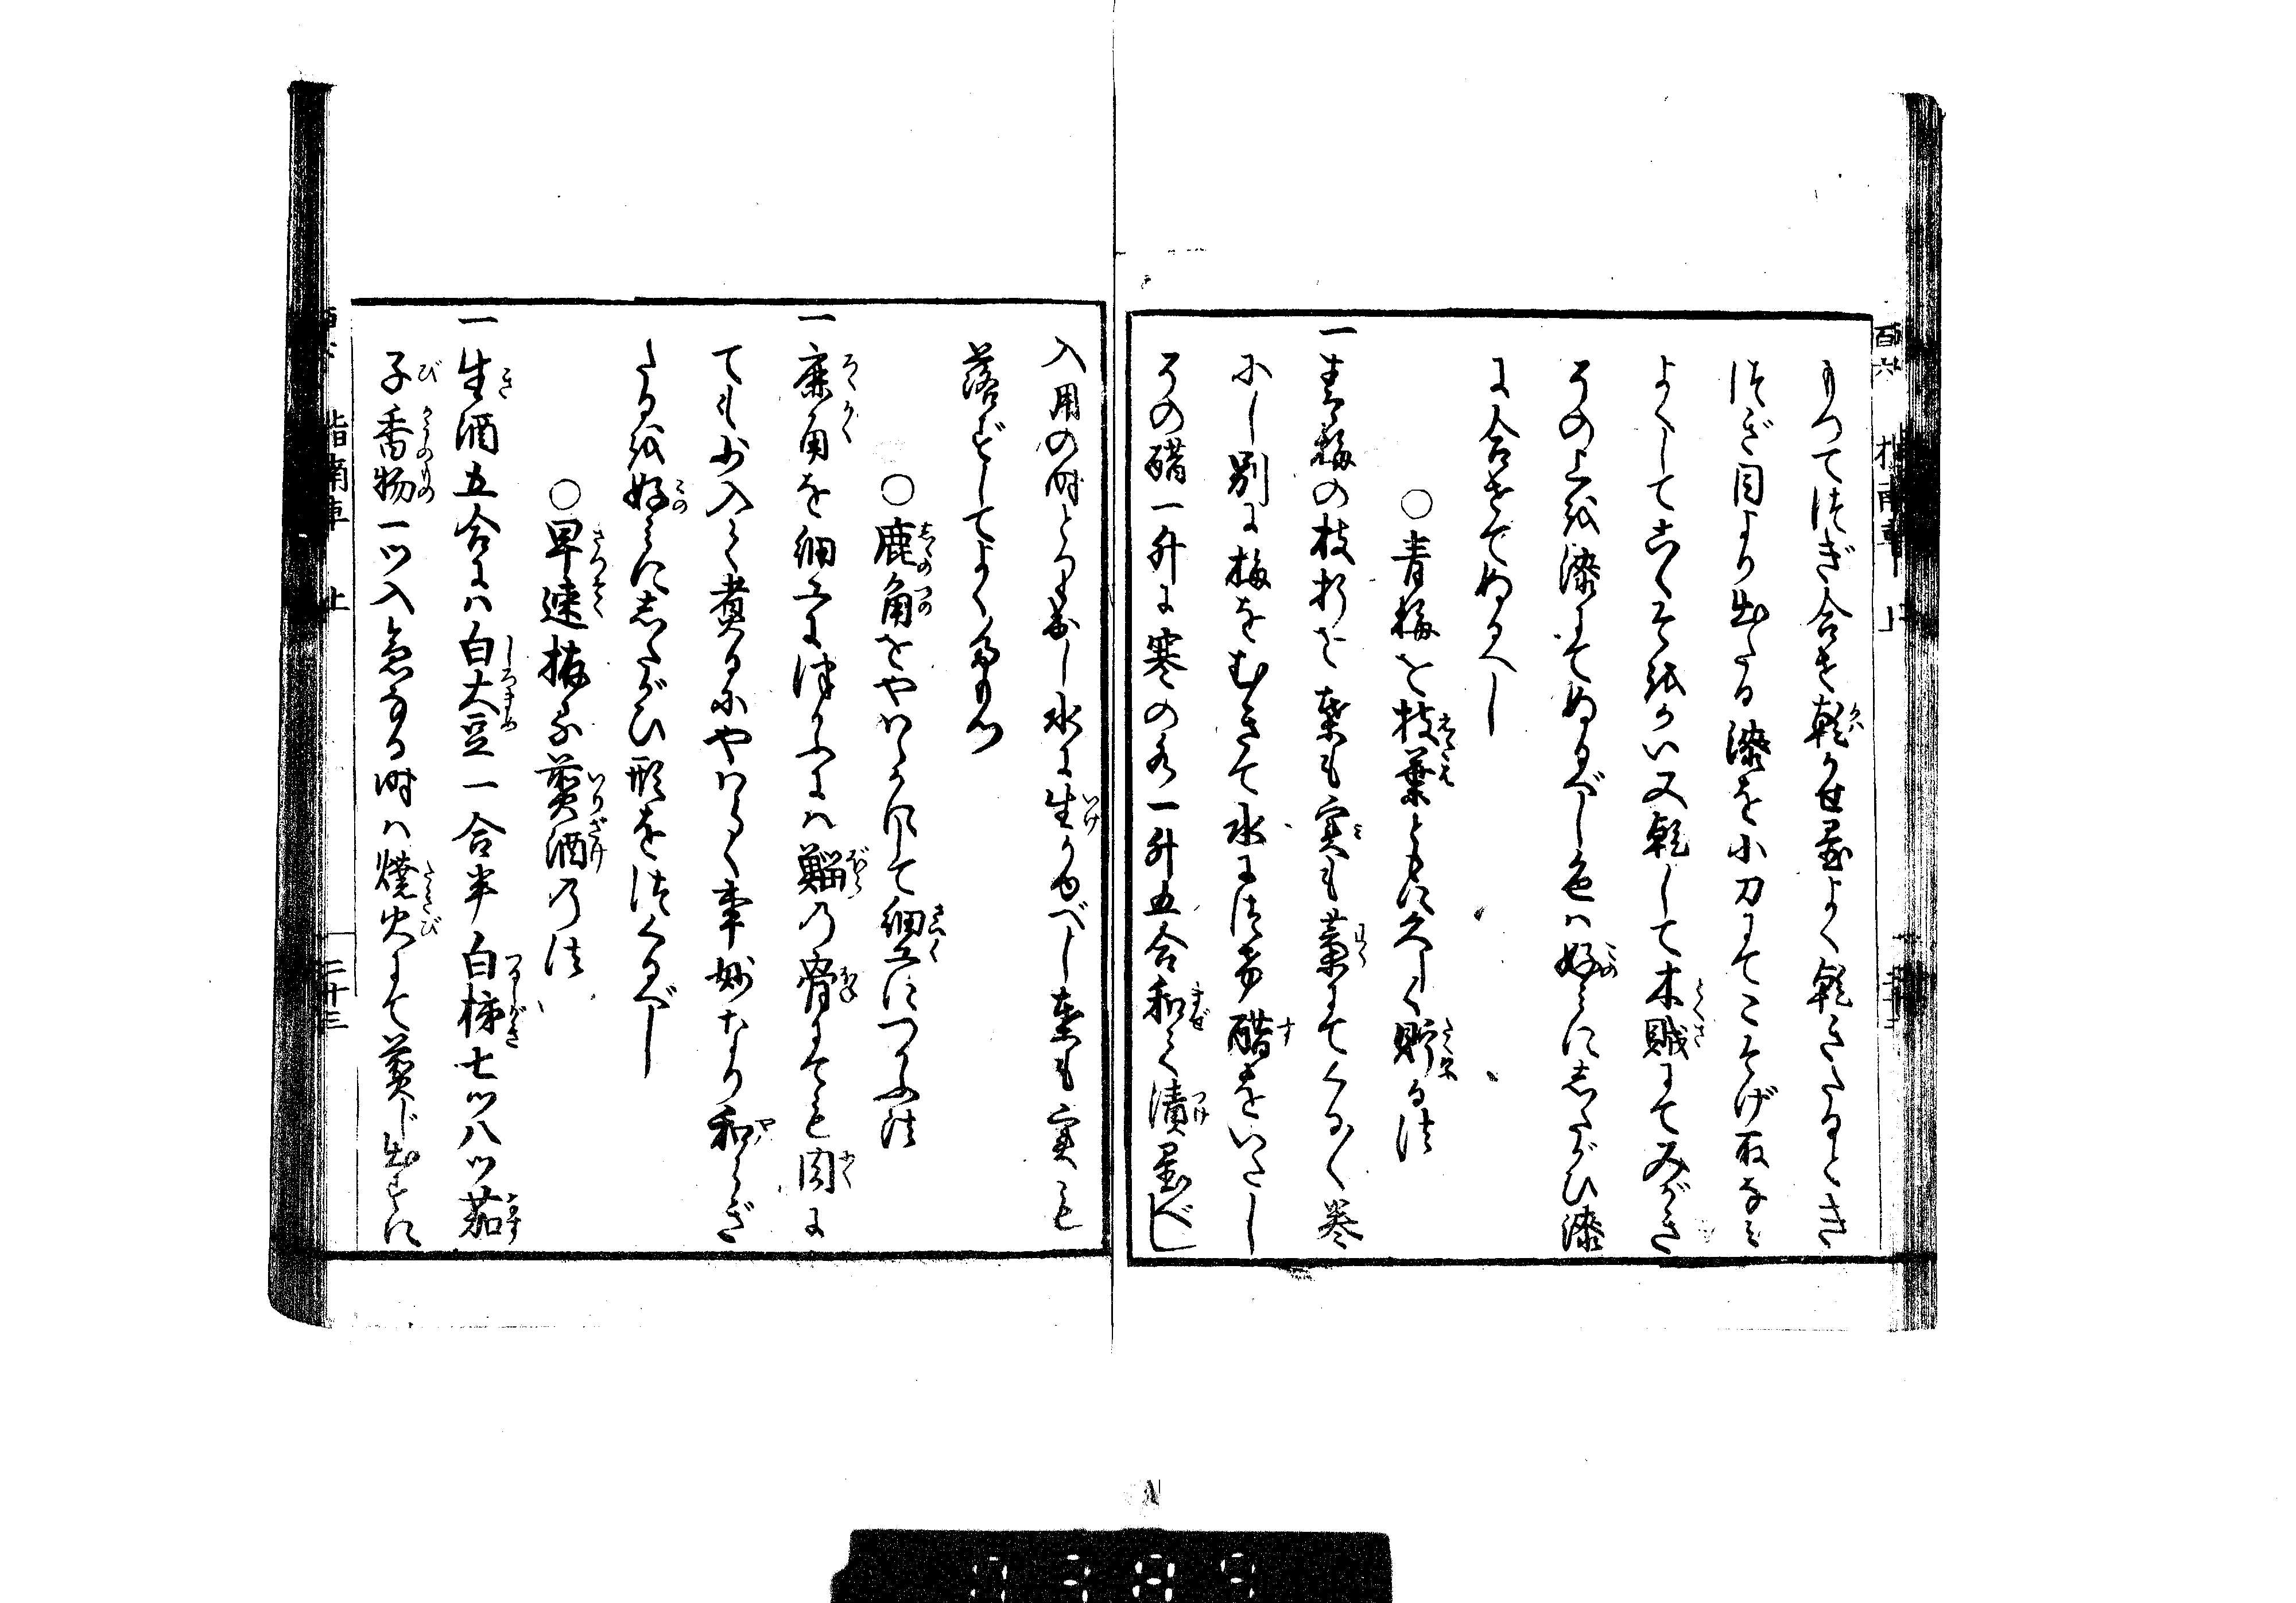 もつてつぎ合せ乾かせ置よく乾きたるとき
つぎ目より出たる漆を小刀にてこそげ取なを
よくしてあくそ紙かい又乾して木賊にてみがき
その上を漆にてぬるべし色は好みにしたがひ漆
に合せてぬるへし
○青梅を枝葉ともに久しく貯る法
一青梅の枝折を葉も実も藁にてくる〱巻
にし別に梅をむきて水につけ醋をいたし
その醋一升に寒の水一升五合和て漬置べし
入用の時とり出し水に生かゆべし葉も実も
落ずしてよくたもつ
○鹿角をやはらかにして細工につかふ法
一鹿角を細工につかふには鯔の脊にても肉に
ても少入て煮るにやはらく事妙なり和らぎ
たるを好みにしたがひ形をつくるべし
○早速拵る煎酒の法
一生酒五合には白大豆一合半白柿七ツ八ツ茄
子香物一ツ入急なる時は焼火にて煎じ出すに
百六 指南車 上 二十三